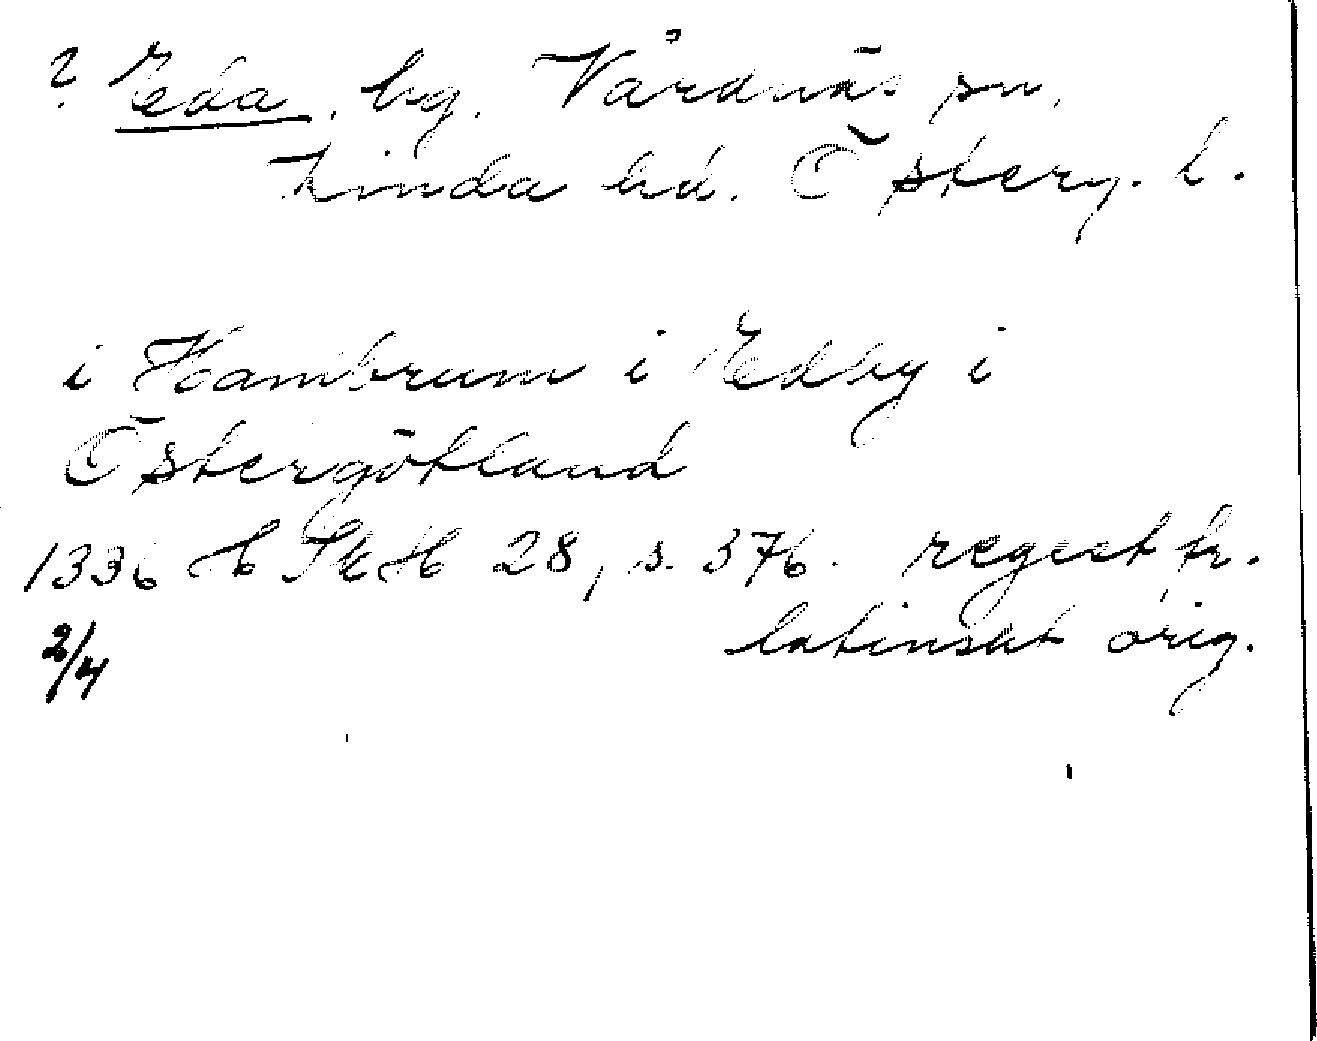 ? Eda, bg. Vårdnäs sn,
Kinda hd. Österg. l.
i Hambrum i Edby i
Östergötland
1336 HSkH 28, s. 376. regest fr.
2/4 latinskt orig.